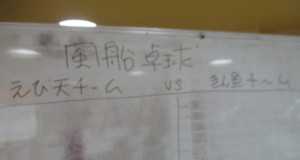 風船卓球
えび天チーム vs きん魚チーム